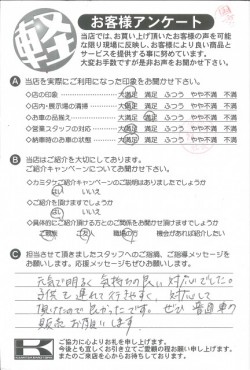 軽
お客様アンケート
当店では、お買い上げ頂いたお客様の声を可能
な限り現場に反映し、お客様により良い商品と
サービスを提供する事に努めています。
大変お手数ですが是非お声をお聞かせ下さい。
A 当店を実際にご利用になった印象をお聞かせ下さい。
◇店の印象 大満足 満足 ふつう やや不満 不満
◇店内・展示場の清掃 大満足 満足 ふつう やや不満 不満
◇お車の品揃え 大満足 満足 ふつう やや不満 不満
◇営業スタッフの対応 大満足 満足 ふつう やや不満 不満
◇納車時のお車の状態 大満足 満足 ふつう やや不満 不満
B 当店はご紹介を大切にしております。
ご紹介キャンペーンについてお聞かせ下さい。
◇カミタケご紹介キャンペーンのご説明はありましたでしょうか
はい いいえ
◇ご紹介を頂けますでしょうか
はい いいえ
◇具体的にご紹介頂ける方とのご関係をお聞かせ頂けますでしょうか
ご親族 ご友人 職場の方 機会があれば紹介したい
C 担当させて頂きましたスタッフへのご指摘、ご指導メッセージを
お願いします。応援メッセージもぜひお願いします。
元気で明るく気持ちの良い対応でした。
子供を連れて行きやすく、対応して
頂けたので良かったです。ぜひ普通車の
販売お願いします
K
ご協力に心よりお礼を申し上げます。
今後とも宜しくお引き立てご愛顧の程お願い申し上げます。
またのご来店を心からお待ちしております。